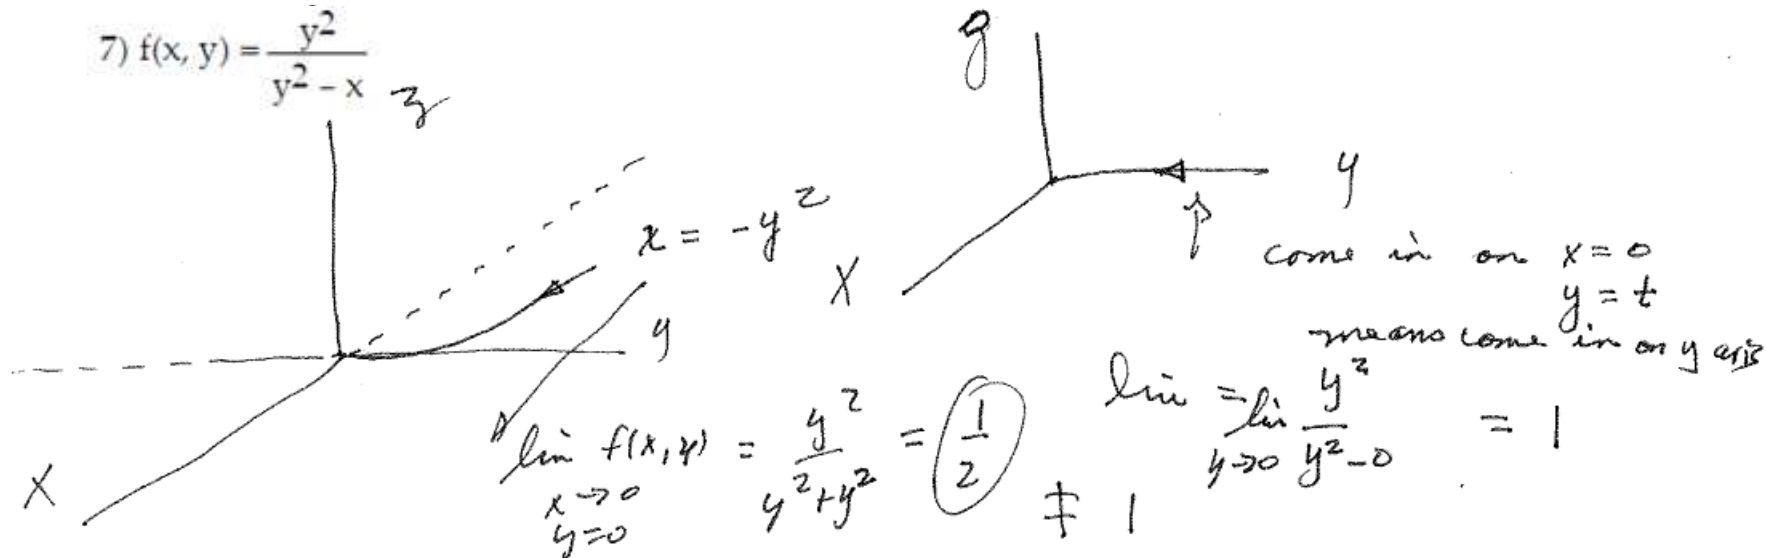 7) f(x, y) = y² / (y² – x)
z
x = -y²
y
X
lim f(x,y) = y² / (y² + y²) = 1/2
x→0
y=0
≠ 1
y
X
come in on x=0
y = t
means come in on y axis
lim = lim y² / (y² - 0) = 1
y→0